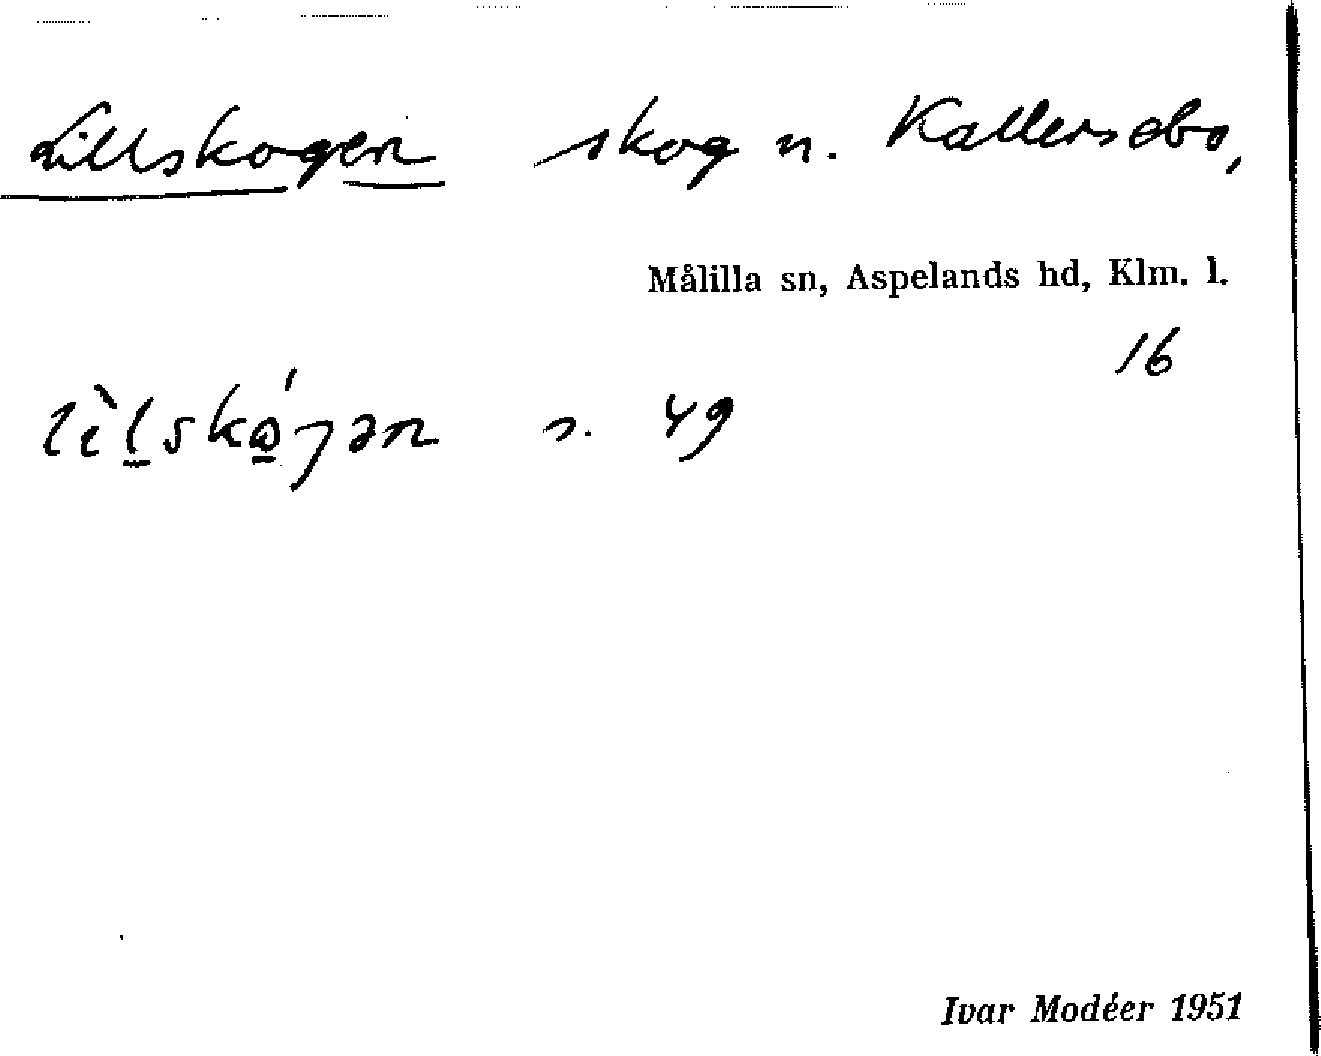 Lillskogen skog n. Kallersebo,
Målilla sn, Aspelands hd, Klm. l.
16
s. 49
Ivar Modéer 1951